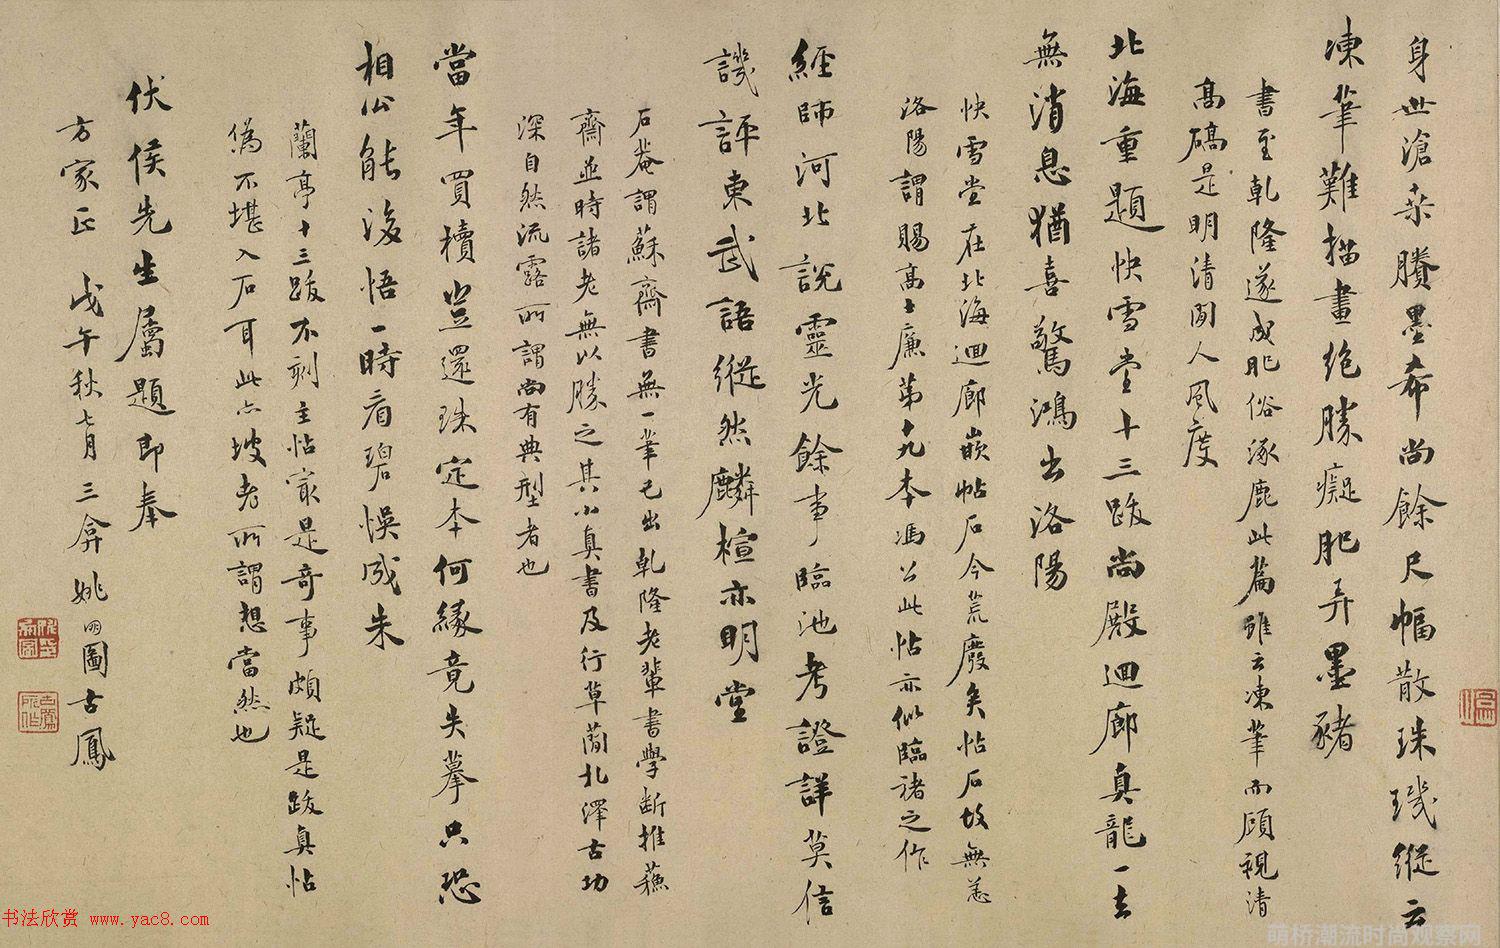 身世滄桑賸墨希尚餘尺幅散珠璣縱云
凍筆難描畫絶勝癡肥弄墨豬
書至乾隆遂成肥俗涿鹿此篇雖云凍筆而頎視清
髙礄是明清閒人風度
北海重題快雪堂十三跋尚殿迴廊真龍一去
無消息猶喜驚鴻出洛陽
快雪堂在北海迴廊嵌帖石今荒廢矣帖石故無恙
洛陽謂賜髙士廉第十九本馮公此帖亦似臨褚之作
經師河北說靈光餘事臨池考證詳莫信
譏評東武語縱然麟楦亦明堂
石菴謂蘇齋書無一筆已出乾隆老輩書學断推蘓
齋並時諸老無以勝之其小真書及行草蕳北澤古功
深自然流露所謂尚有典型者也
當年買櫝豈還珠定本何緣竟失摹只恐
相公能後悟一時看碧悞成朱
蘭亭十三跋不刻主帖寔是奇事頗疑是跋真帖
偽不堪入石耳此亦坡老所謂想當然也
伏侯先生屬題即奉
方家正 戊午秋七月三弇姚明圖古鳳
书法欣赏 www.yac8.com
萌桥潮流时尚观察网